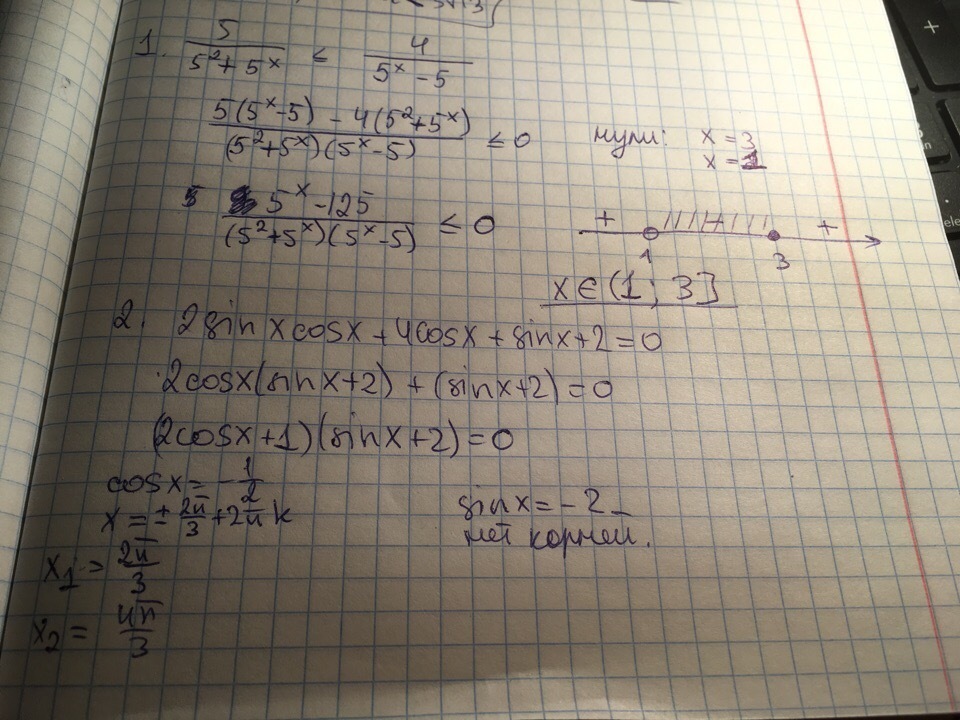 1. 5/(5²+5ˣ) ≤ 4/(5ˣ-5)
(5(5ˣ-5) - 4(5²+5ˣ))/((5²+5ˣ)(5ˣ-5)) ≤ 0
нули: x = 3
x = 1
(5ˣ-125)/((5²+5ˣ)(5ˣ-5)) ≤ 0
+ +
1 3
x∈(1; 3]
2. 2sinxcosx+4cosx+sinx+2=0
2cosx(sinx+2) + (sinx+2) = 0
(2cosx+1)(sinx+2)=0
cosx = -1/2
x = ± 2π/3 + 2πk
sinx = -2
нет корней.
x₁ = 2π/3
x₂ = 4π/3